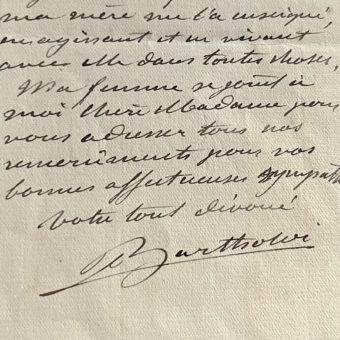 ma mère me l'a enseigné,
en agissant et en vivant
avec elle dans toutes choses,
Ma femme se joint à
moi chère Madame pour
vous adresser tous nos
remerciments pour vos
bonnes affectueuses sympath
Votre tout dévoué
Bartholdi